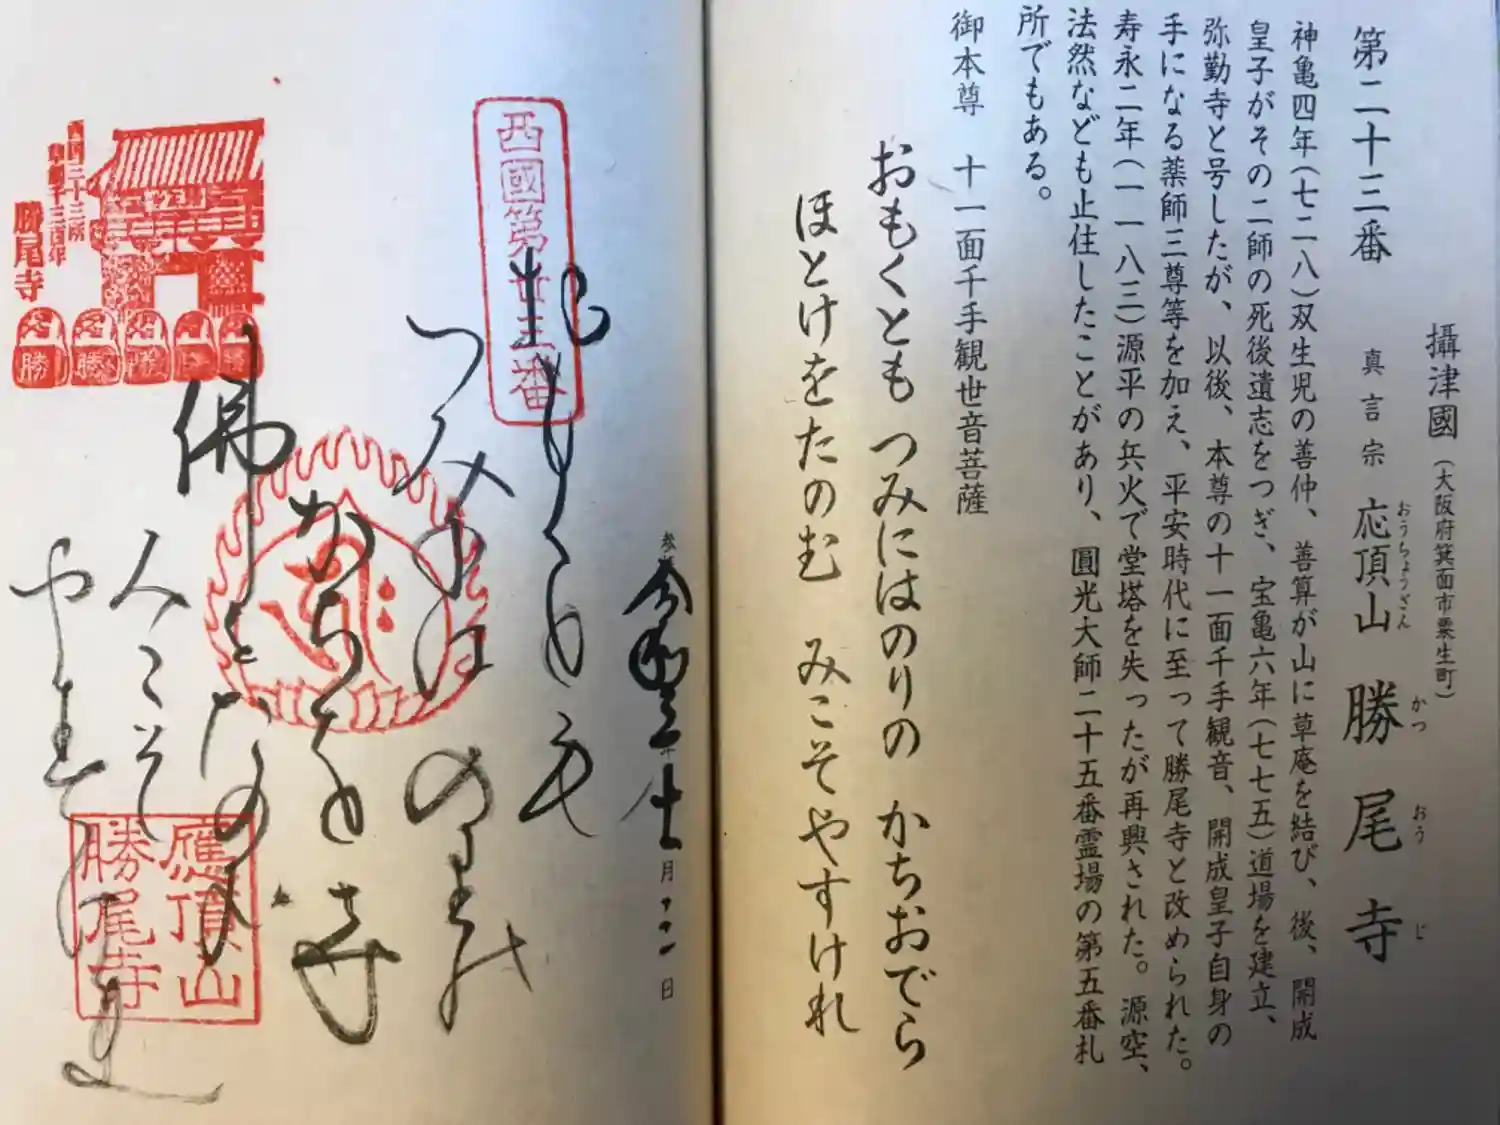 第二十三番
攝津國（大阪府箕面市粟生町）
真言宗 応頂山 勝尾寺
おうちょうざん かつ おう じ
神亀四年（七二八）双生児の善仲、善算が山に草庵を結び、後、開成
皇子がその二師の死後遺志をつぎ、宝亀六年（七七五）道場を建立、
弥勤寺と号したが、以後、本尊の十一面千手観音、開成皇子自身の
手になる薬師三尊等を加え、平安時代に至って勝尾寺と改められた。
寿永二年（一一八三）源平の兵火で堂塔を失ったが再興された。源空、
法然なども止住したことがあり、圓光大師二十五番霊場の第五番札
所でもある。
御本尊 十一面千手観世音菩薩
おもくとも つみにはのりの かちおでら
ほとけをたのむ みこそやすけれ
月 日
西國第廿三番
おもくとも
つみには のりの
かちを寺
佛
人こそ
や
應頂山
勝尾寺
西国三十三所
草創千三百年
勝尾寺
勝 勝 勝